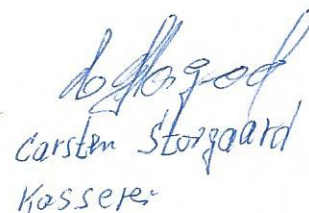 Carsten Storgaard
Kasserer